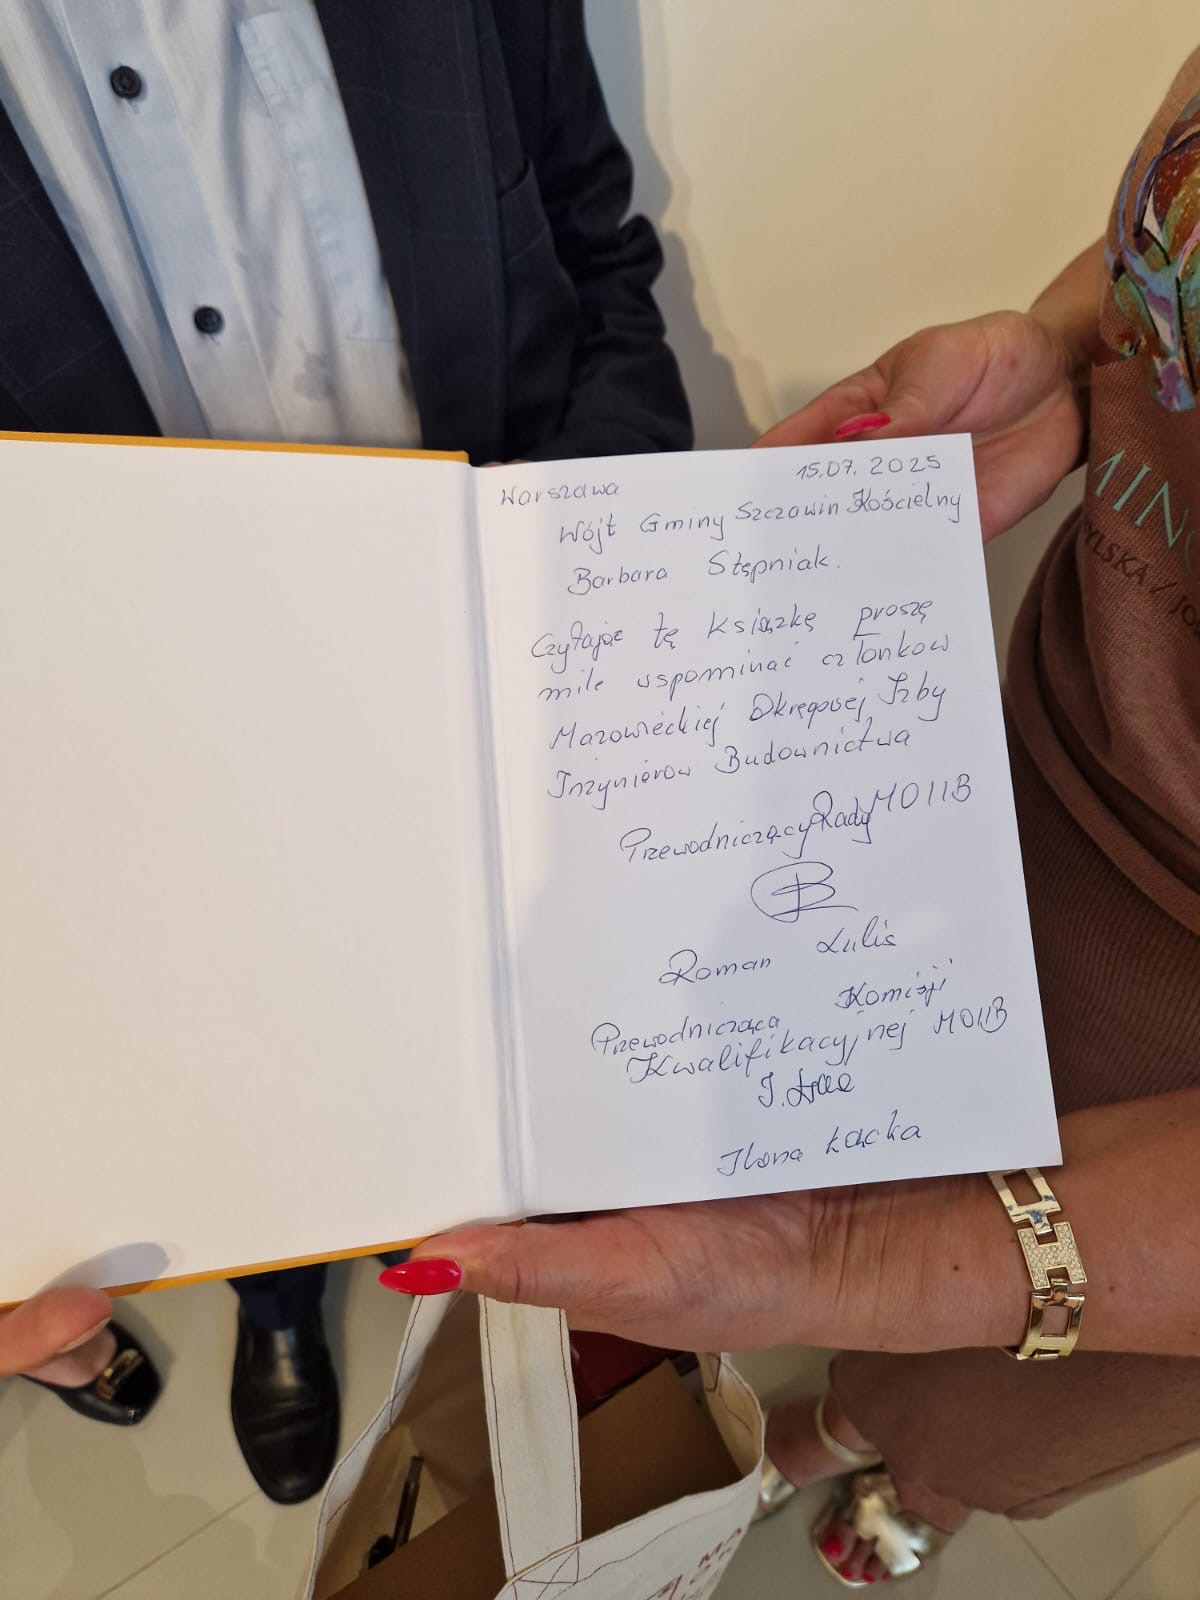 Warszawa 15.07.2025
Wójt Gminy Szczawin Kościelny
Barbara Stępniak.
Czytając tę książkę proszę
mile wspominać członków
Mazowieckiej Okręgowej Izby
Inżynierów Budownictwa
Przewodniczący Rady MOIIB
Roman Lulis
Przewodnicząca Komisji
Kwalifikacyjnej MOIIB
Ilona Łącka
MINO
YLSKA / JO
MA